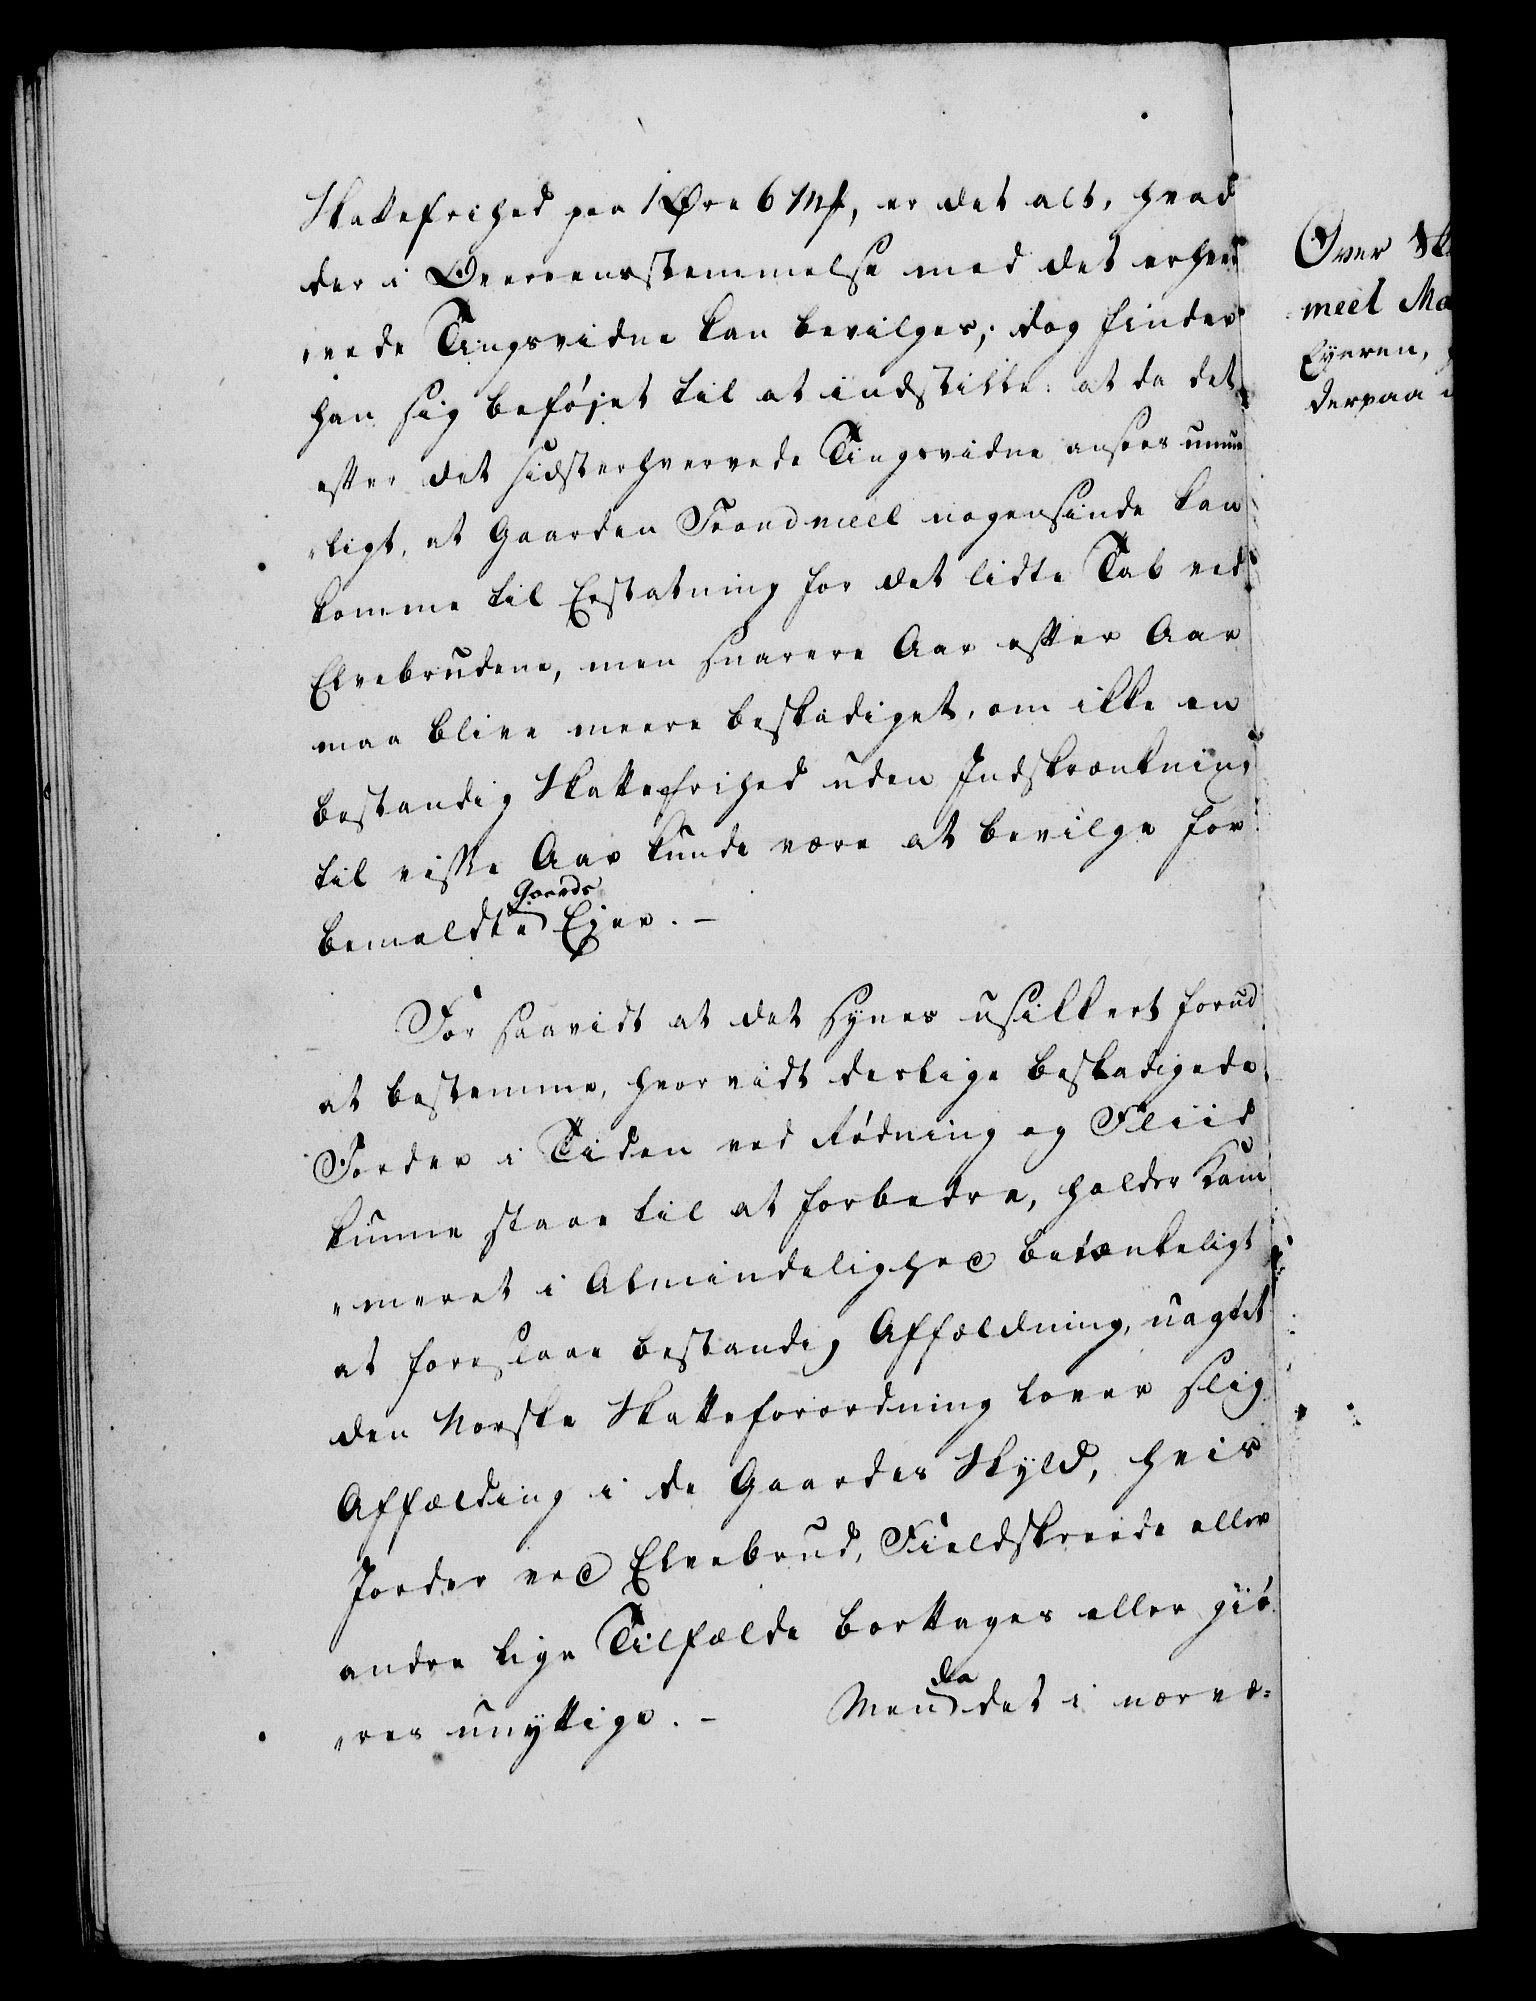 Skattefrihed paa 1 Øre 6 Mk, er det alt, hvad
der i Overeensstemmelse med det erhver
„vede Tingsvidne kan bevilges; dog finder
han sig beføjet til at indstille: at da det
efter det sidsterhvervede Tingsvidne ansees umue
„ligt, at Gaarden Trondmeel nogensinde kan
komme til Erstatning for det lidte Tab ved
Elvebrudene, men snarere Aar efter Aar
maa blive meere beskadiget, om ikke en
bestandig Skattefrihed uden Indskrænkning
til visse Aar kunde være at bevilge for
Gaards
bemeldte Ejer. –
For saavidt at det synes usikkert forud
at bestemme, hvorvidt deslige beskadigede
Jorder i Tiden ved Rødning og Fliid
kunne staae til at forbedre, holder Kam
„meret i Almindelighed betænkeligt
at foreslaae bestandig Affældning, uagtet
den Norske Skatteforordning lover slig
Affælding i de Gaardes Skyld, hvis
Jorder ved Elvebrud, Fieldskreede eller
andre lige Tilfælde borttages eller giö
„res unyttige. – Men det i nærvæ=
da
Over Sk
meel Ma
Eyeren,
derpaa